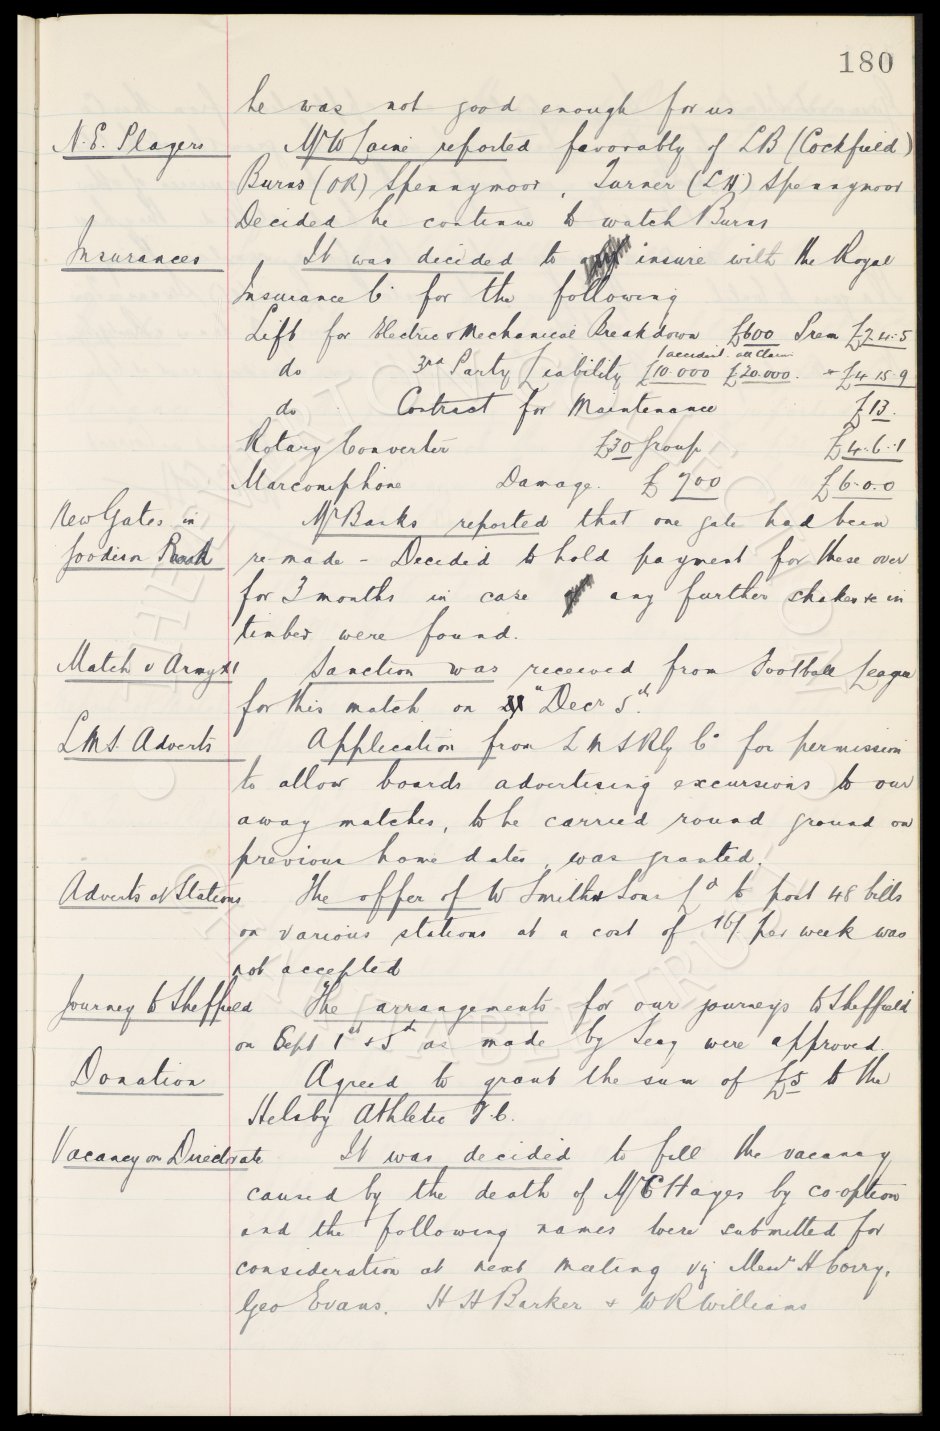 180
he was not good enough for us
N.E. Players Mr W Laine reported favorably of LB (Cockfield)
Burns (OR) Spennymoor, Turner (LH) Spennymoor
Decided he continue to watch Burns
Insurances It was decided to insure with the Royal
Insurance Co for the following
Lift for Electric & Mechanical Breakdown £600 Prem £24.5
1 accident all Claim
do 3rd Party Liability £10.000 £20.000. + £4 15 9
do Contract for Maintenance £13.
Rotary Converter £30 Group £4.6.1
Marconiphone Damage. £700 £6.0.0
New Gates in Mr Banks reported that one gate had been
Goodison Road re-made - Decided to hold payment for these over
for 3 months in case any further shakes &c in
timber were found.
Match v Army XI Sanction was received from Football League
for this match on Decr 5th.
LMS. Adverts Application from L M S Rly Co for permission
to allow boards advertising excursions to our
away matches, to be carried round ground on
previous home dates, was granted.
Adverts at Stations The offer of W Smith & Sons Ld to post 48 bills
on various stations at a cost of 16/- per week was
not accepted
Journey to Sheffield The arrangements for our journeys to Sheffield
on Sept 1st & 5th as made by Secy were approved.
Donation Agreed to grant the sum of £5 to the
Helsby Athletic F.C.
Vacancy on Directorate It was decided to fill the vacancy
caused by the death of Mr C Hayes by co-option
and the following names were submitted for
consideration at next meeting viz Messrs A Corry,
Geo Evans. H H Barker & W R Williams